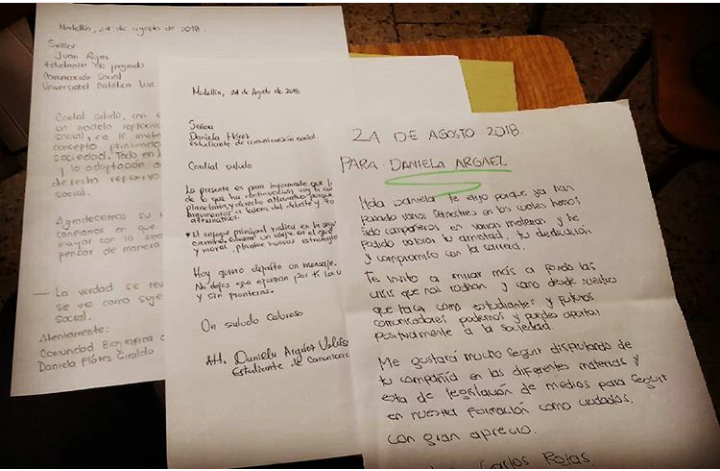 Medellín, 24 de agosto de 2018.
Señor
Juan Rojas
Estudiante de pregrado
Comunicación Social
Universidad Católica Luis
Cordial saludo, con
un modelo reflexivo
social,
concepto
sociedad. Todo en
y la adaptación
derecho
social.
Agradecemos su
confianza en que
mayor con lo
pensar de manera
La verdad se
se ve como suje
social.
Atentamente:
Comunidad
Daniela Flórez Giraldo
Medellín, 24 de Agosto de 2018
Señora
Daniela Flórez
Estudiante de comunicación social.
Cordial saludo
La presente es para informarle que
de lo que ha continuación voy a
planetario y directo
argumentar a favor del debate y
alternativas.
El enfoque principal radica en la
cambio,
y moral, plantear nuevas estrategia
Hoy quiero dejarte un mensaje.
No dejes que
y sin fronteras.
Un saludo Caluroso
Att. Daniela Argáez
Estudiante de Comunicació
24 DE AGOSTO 2018.
PARA: DANIELA ARGAEZ.
Hola Daniela te elijo porque ya han
pasado varios semestres en los cuales hemos
sido compañeros en varias materias y he
podido valorar tu amistad, tu dedicación
y compromiso con la carrera.
Te invito a mirar más a fondo las
crisis que nos rodean y claro desde nuestro
que hacer como estudiantes y futuros
comunicadores podemos y puedes aportar
positivamente a la sociedad.
Me gustará mucho seguir disfrutando de
tu compañía en las diferentes materias y
esta de legislación de medios para seguir
en nuestra formación como
con gran aprecio.
Carlos Rojas